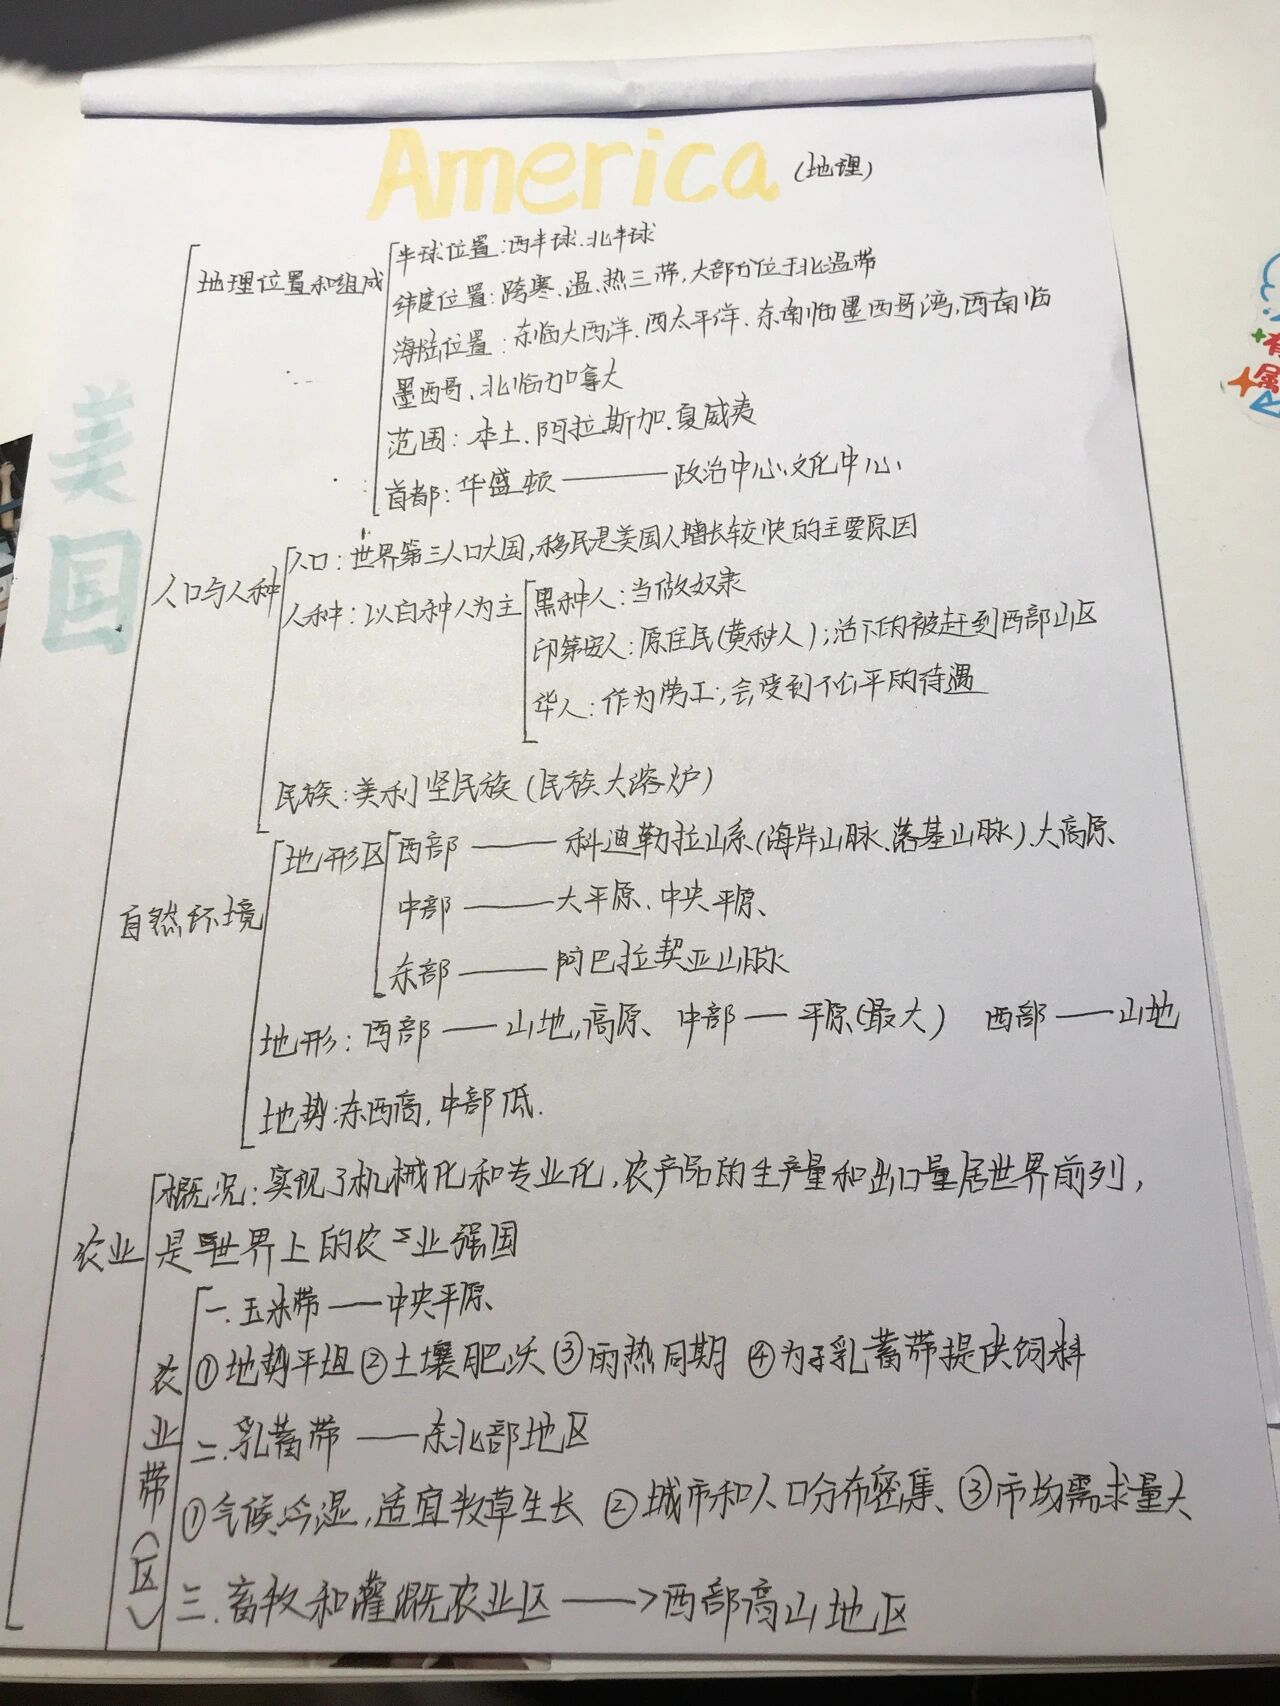 America (地理)
美国
地理位置和组成
半球位置：西半球、北半球
纬度位置：跨寒、温、热三带，大部分位于北温带
海陆位置：东临大西洋、西太平洋、东南临墨西哥湾，西南临
墨西哥、北临加拿大
范围：本土、阿拉斯加、夏威夷
首都：华盛顿——政治中心、文化中心、
人口与人种
人口：世界第三人口大国，移民是美国人增长较快的主要原因
人种：以白种人为主
黑种人：当做奴隶
印第安人：原住民(黄种人)；活下的被赶到西部山区
华人：作为劳工；会受到不公平的待遇
民族：美利坚民族（民族大溶炉）
自然环境
地形区
西部——科迪勒拉山系(海岸山脉、落基山脉)大高原、
中部——大平原、中央平原、
东部——阿巴拉契亚山脉
地形：西部——山地，高原、中部——平原(最大) 西部——山地
地势：东西高，中部低.
农业
概况：实现了机械化和专业化，农产品的生产量和出口量居世界前列，
是世界上的农业强国
农业带(区)
一.玉米带——中央平原、
①地势平坦②土壤肥沃③雨热同期 ④为乳畜带提供饲料
二.乳畜带——东北部地区
①气候冷湿，适宜牧草生长 ②城市和人口分布密集、③市场需求量大
三.畜牧和灌溉农业区——>西部高山地区
有
属